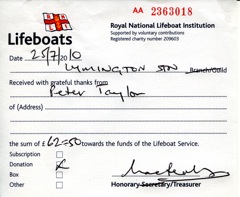 AA 2363018
Royal National Lifeboat Institution
Supported by voluntary contributions
Registered charity number 209603
Lifeboats
Date 25/7/2010
LYMINGTON STN Branch/Guild
Received with grateful thanks from
Peter Taylor
of (Address)
the sum of £ 62=50 towards the funds of the Lifeboat Service.
Subscription
Donation
Box
Other
Honorary Secretary/Treasurer